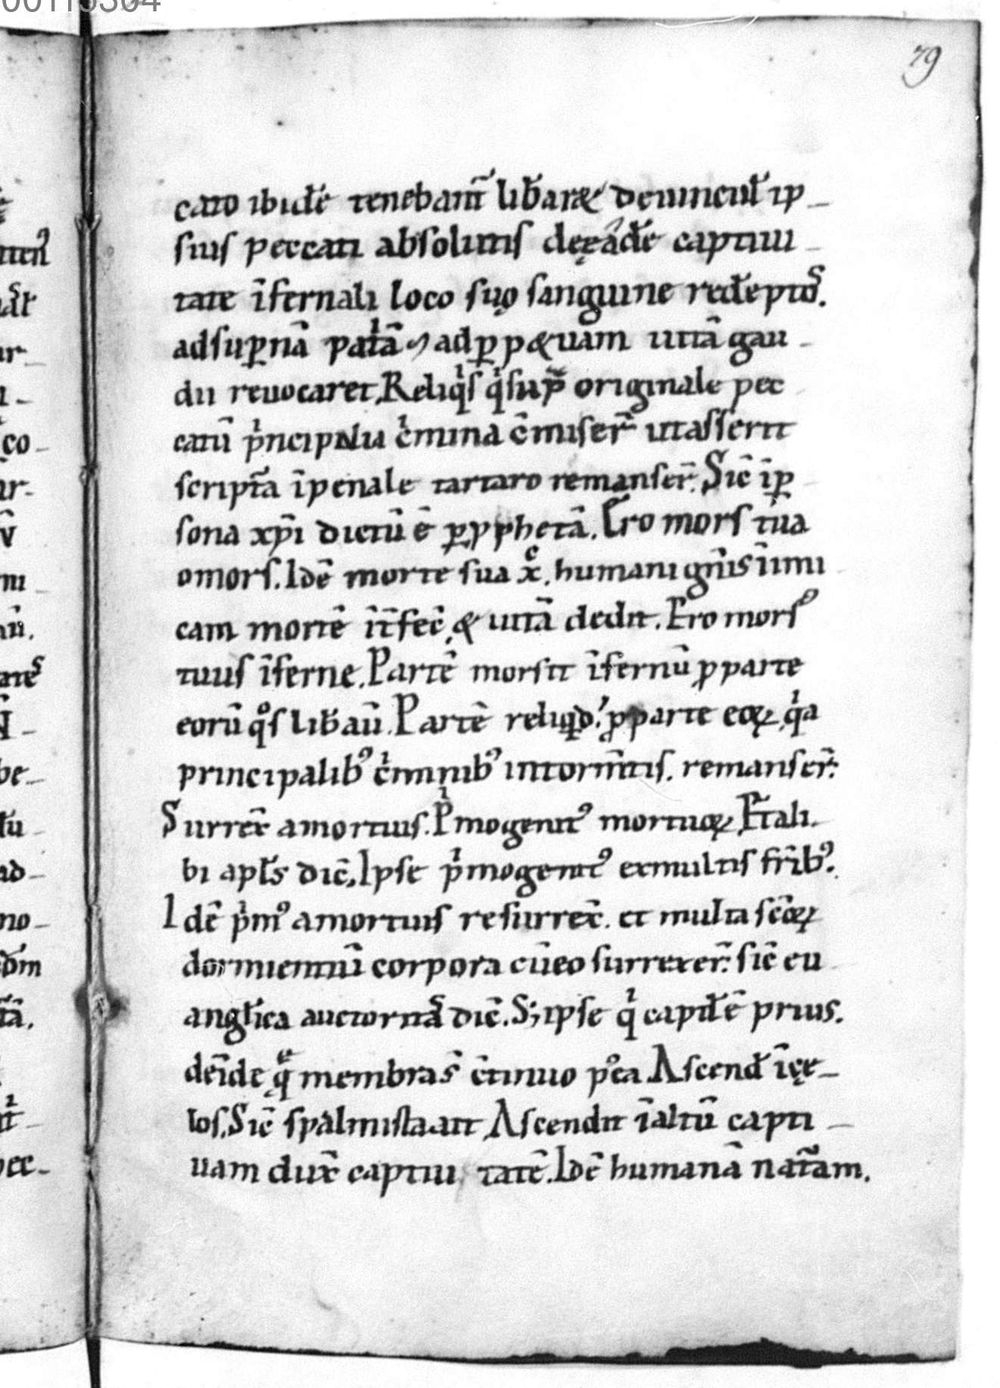 00115304
79
cato ibidē tenebant̄ lib̄aret de vincul̄ ip-
sius peccati absolutis de tradē captiui-
tate īfernali loco suo sanguine redēptos.
ad sup̄nā pat̄ā & ad p̄petuam uitā gau-
dii reuocaret. Reliq̇s q̇ sup̄ originale pec
catū ṗncipalia ċmina c̄miser̄ ut asserit
scriptā ī penale tartaro remanser̄. Sic̄ ī p̄
sona xp̄i dictū ē p̄ p̄phetā. Ero mors tua
o mors. Idē morte sua x̄c humani gn̄is inimi
cam mortē īt̄fec̄ & uitā dedit. Ero mors᾽
tuus īferne. Partē morsit īfernū p̄ parte
eorū q̊s lib̄auū. Partē reliqd᾽ p̄ parte eoꝝ q̇a
principalib᾽ ċminib᾽ intormt̄is. remanser̄.
Surrex̄ a mortuis. Ṗmogenit᾽ mortuoꝝ. Et̄ ali
bi apl̄s dic̄. Ipse ṗmogenit᾽ ex multis fr̄ib᾽.
Idē ṗm᾽ a mortuis resurrex̄. et multa sc̄oꝝ
dormientiū corpora cū eo surrexer̄. sic̄ eu
angl̄ica auctoritas̄ dic̄. S; ipse q̇ capud̄ ē prius.
deīde q̄ membra s̄ c̄tinuo p᾽ea Ascend̄ ī cę-
los. Sic̄ spalmista ait Ascendit ī altū capti-
uam dux̄ captiuitatē. Idē humanā nat̄am.